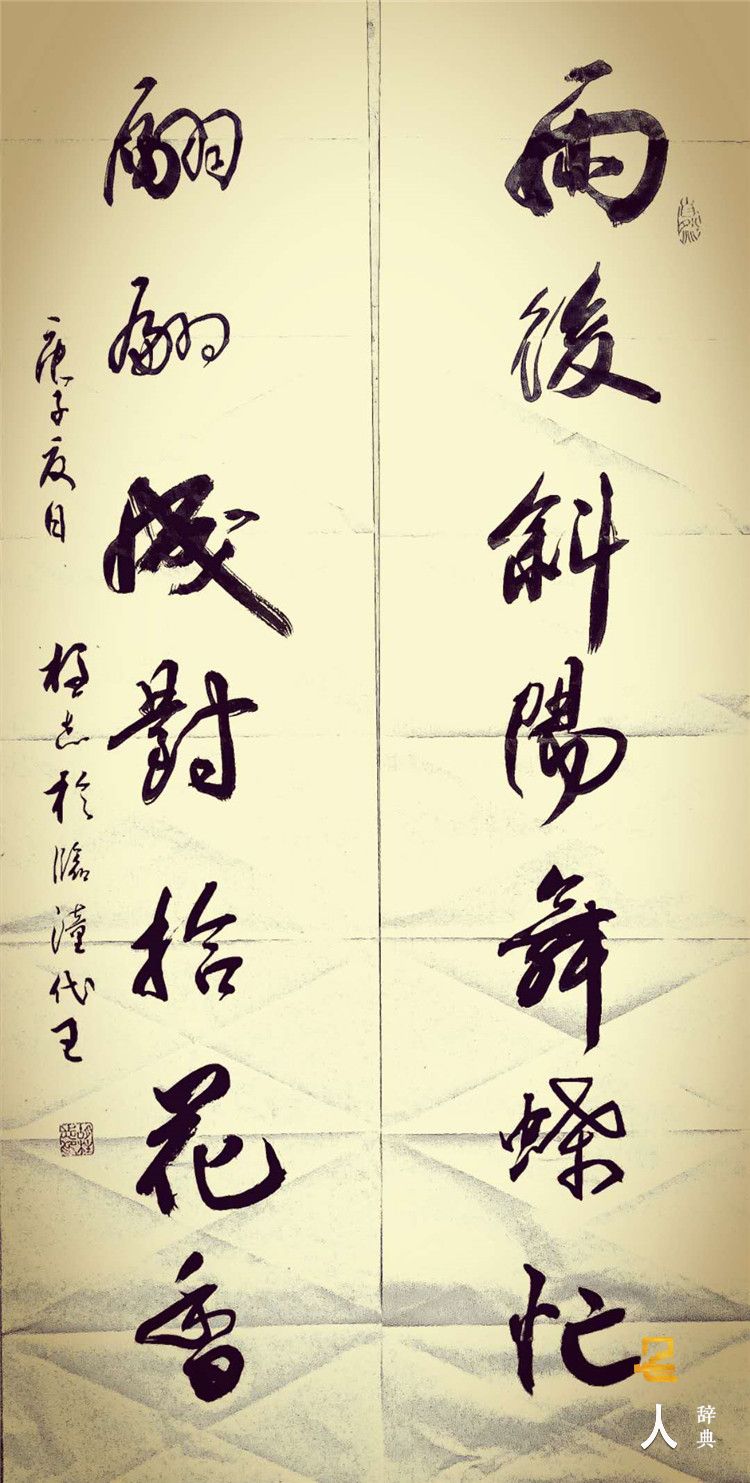 雨後斜陽舞蝶忙
翩翩成對拾花香
庚子夏月 桂志於臨潼代王
名人辞典